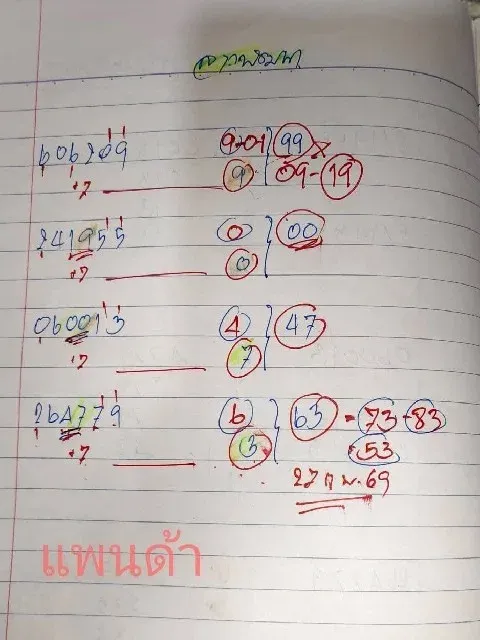 606209 9-01 99
+7 9 09-19
241955 0 00
+7 0
060013 4 47
+7 7
264779 6 63 - 73 - 83
+7 3 53
27 ก.พ. 69
แพนด้า